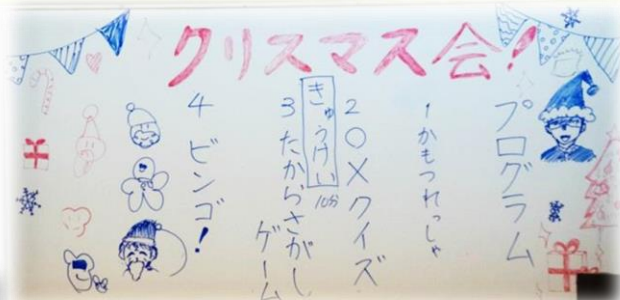 クリスマス会!
プログラム
1かもつれっしゃ
2〇×クイズ
きゅうけい
10分
3たからさがし
ゲーム
4ビンゴ!